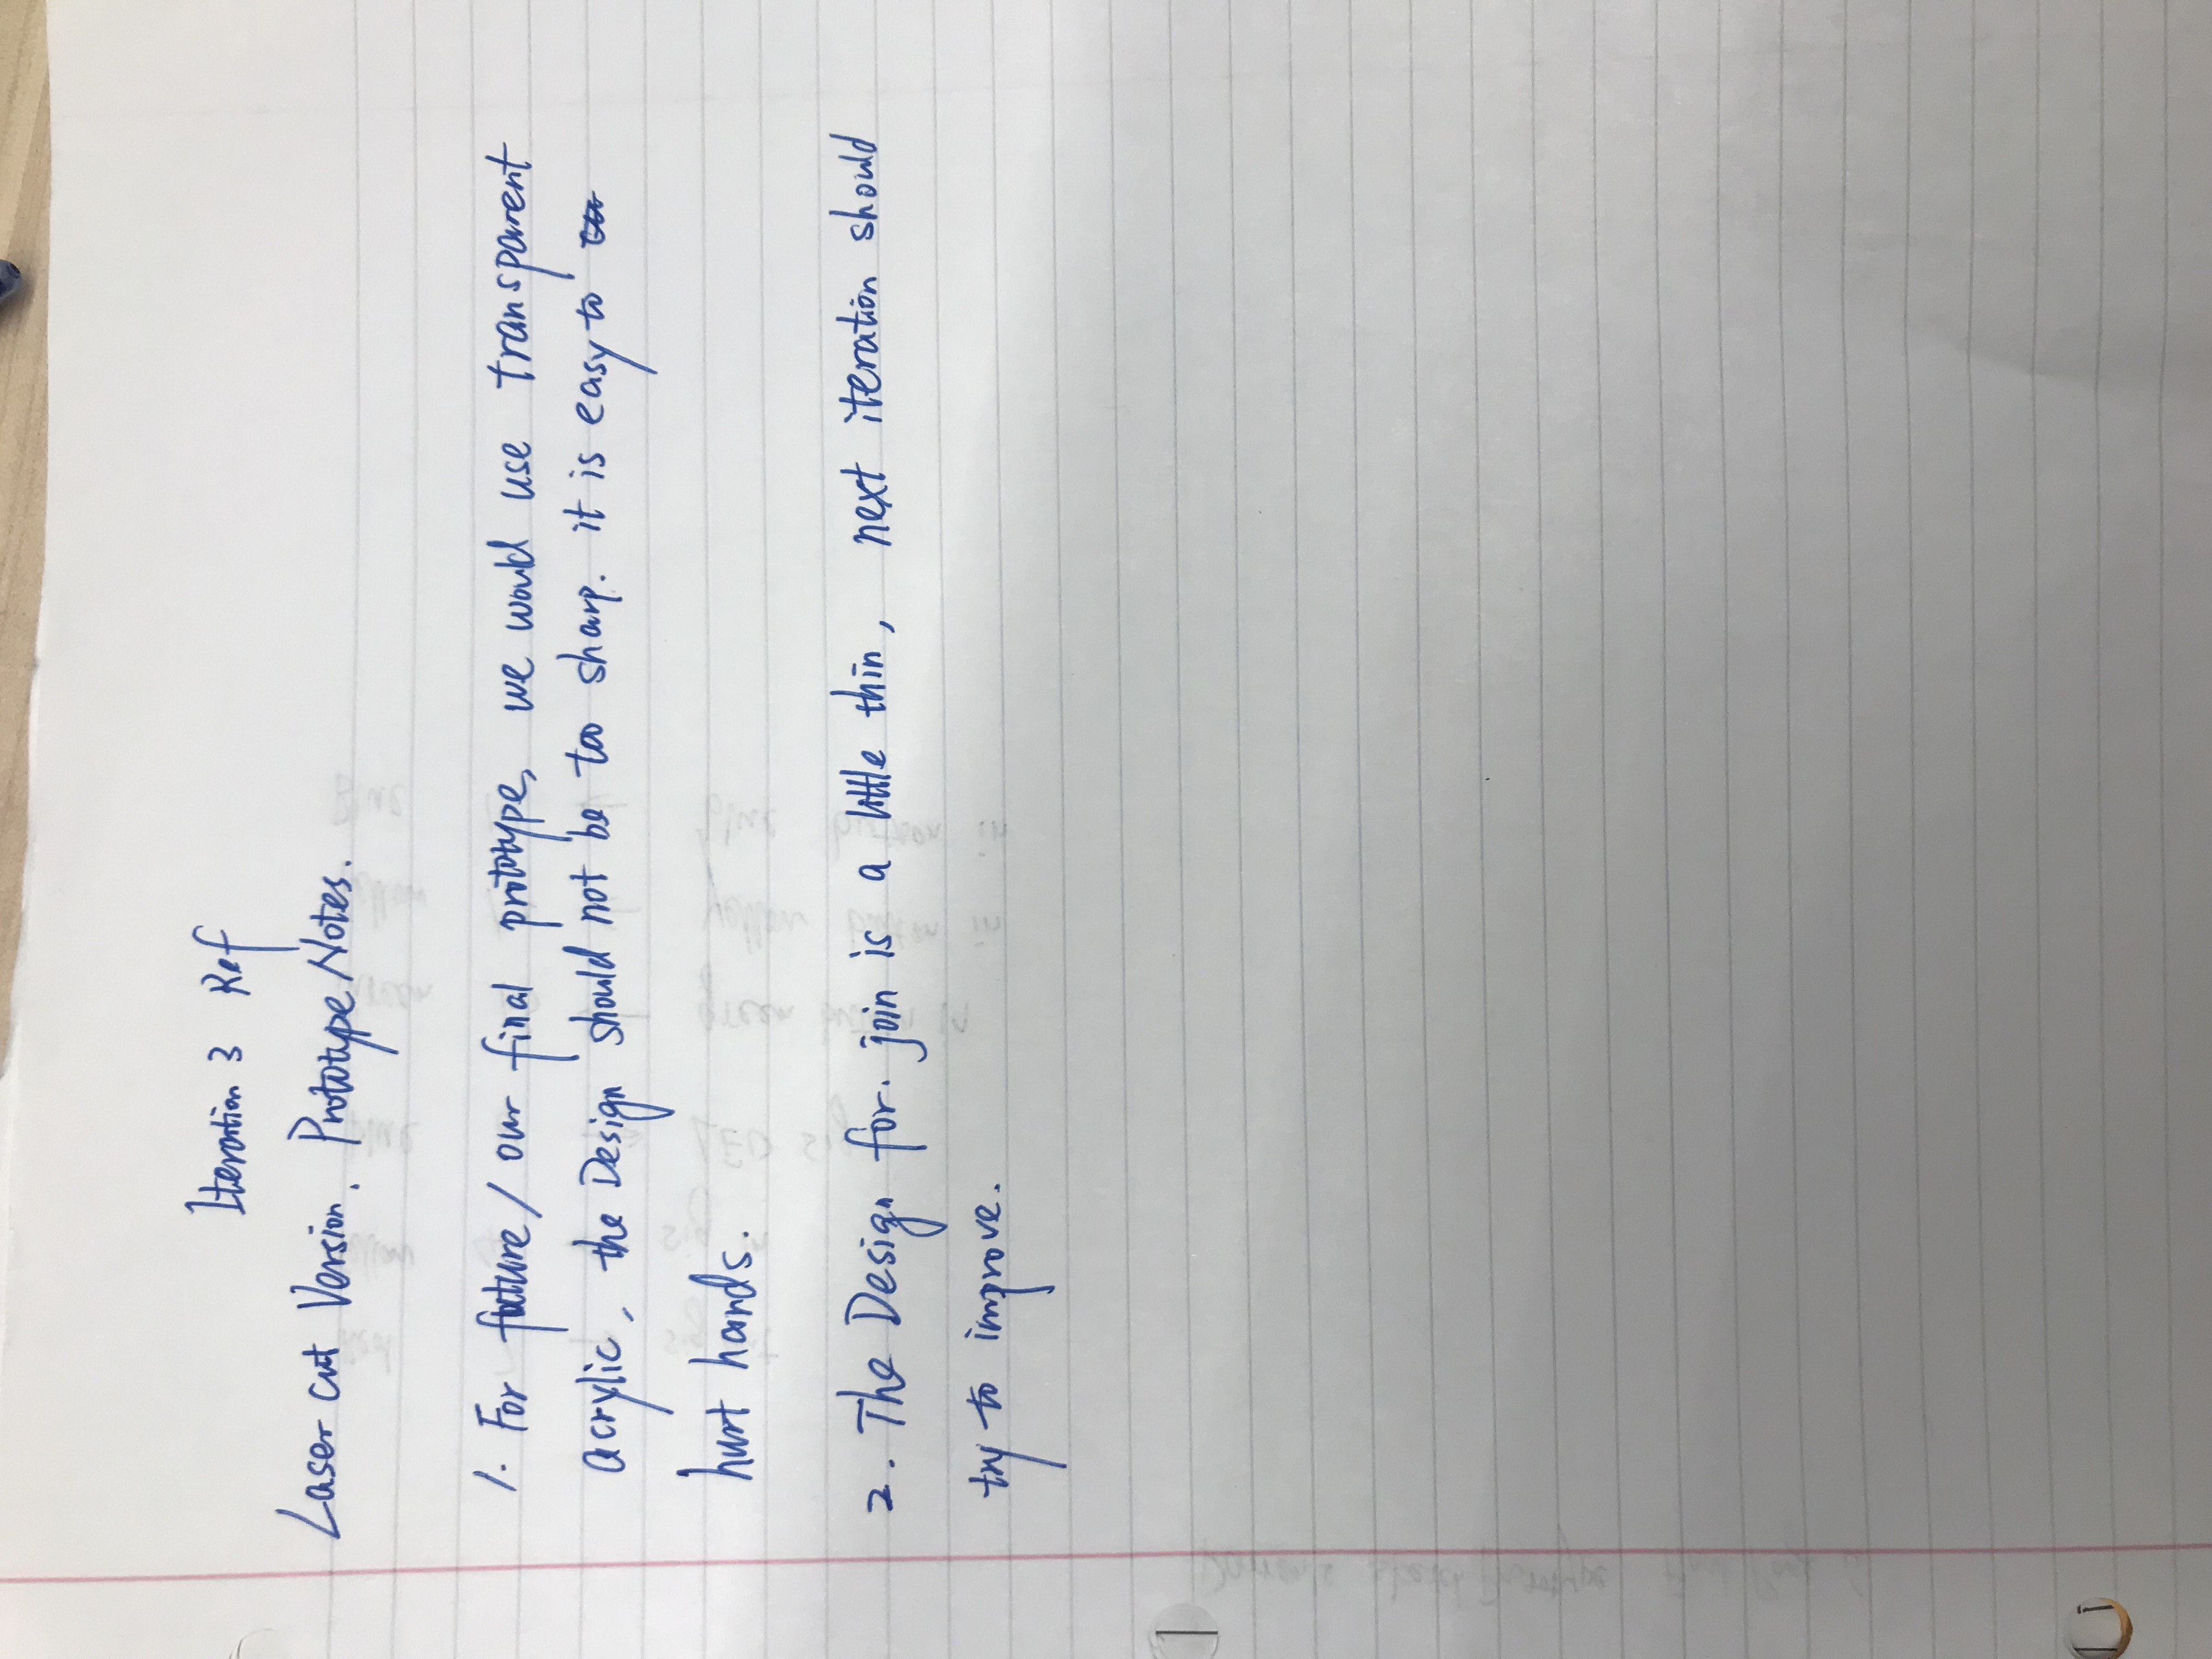 Iteration 3 Ref
Laser cut Version. Prototype Notes.
1. For future / our final prototype, we would use transparent
acrylic, the Design should not be too sharp. it is easy to
hurt hands.
2. The Design for. join is a little thin, next iteration should
try to improve.